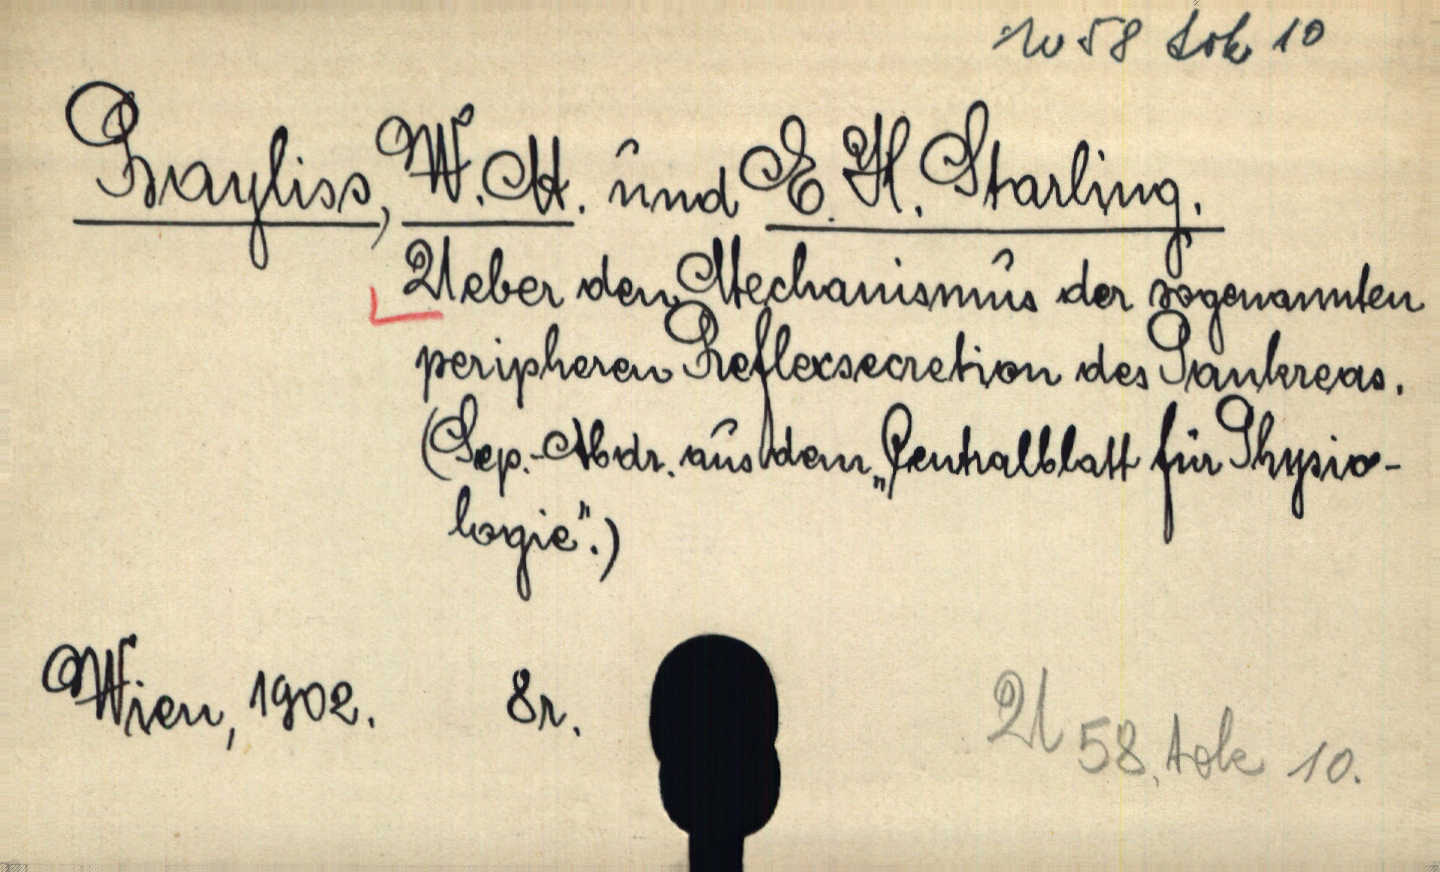 58 tok 10
Bayliss, W. M. und E. H. Starling.
Ueber den Mechanismus der sogenannten
peripheren Reflexsecretion des Pankreas.
(Sep.-Abdr. aus dem „Centralblatt für Physio-
logie".)
Wien, 1902. 8r.
U 58, tok 10.